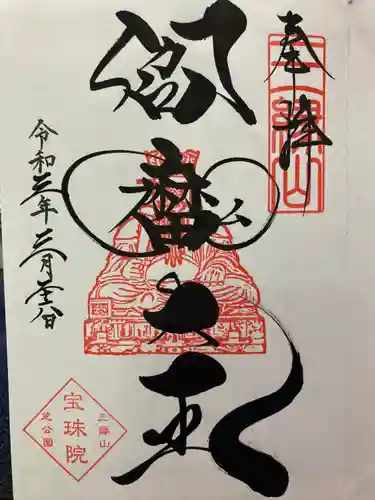 奉拝
三縁山
閻魔大王
令和三年三月
三縁山
宝珠院
芝公園